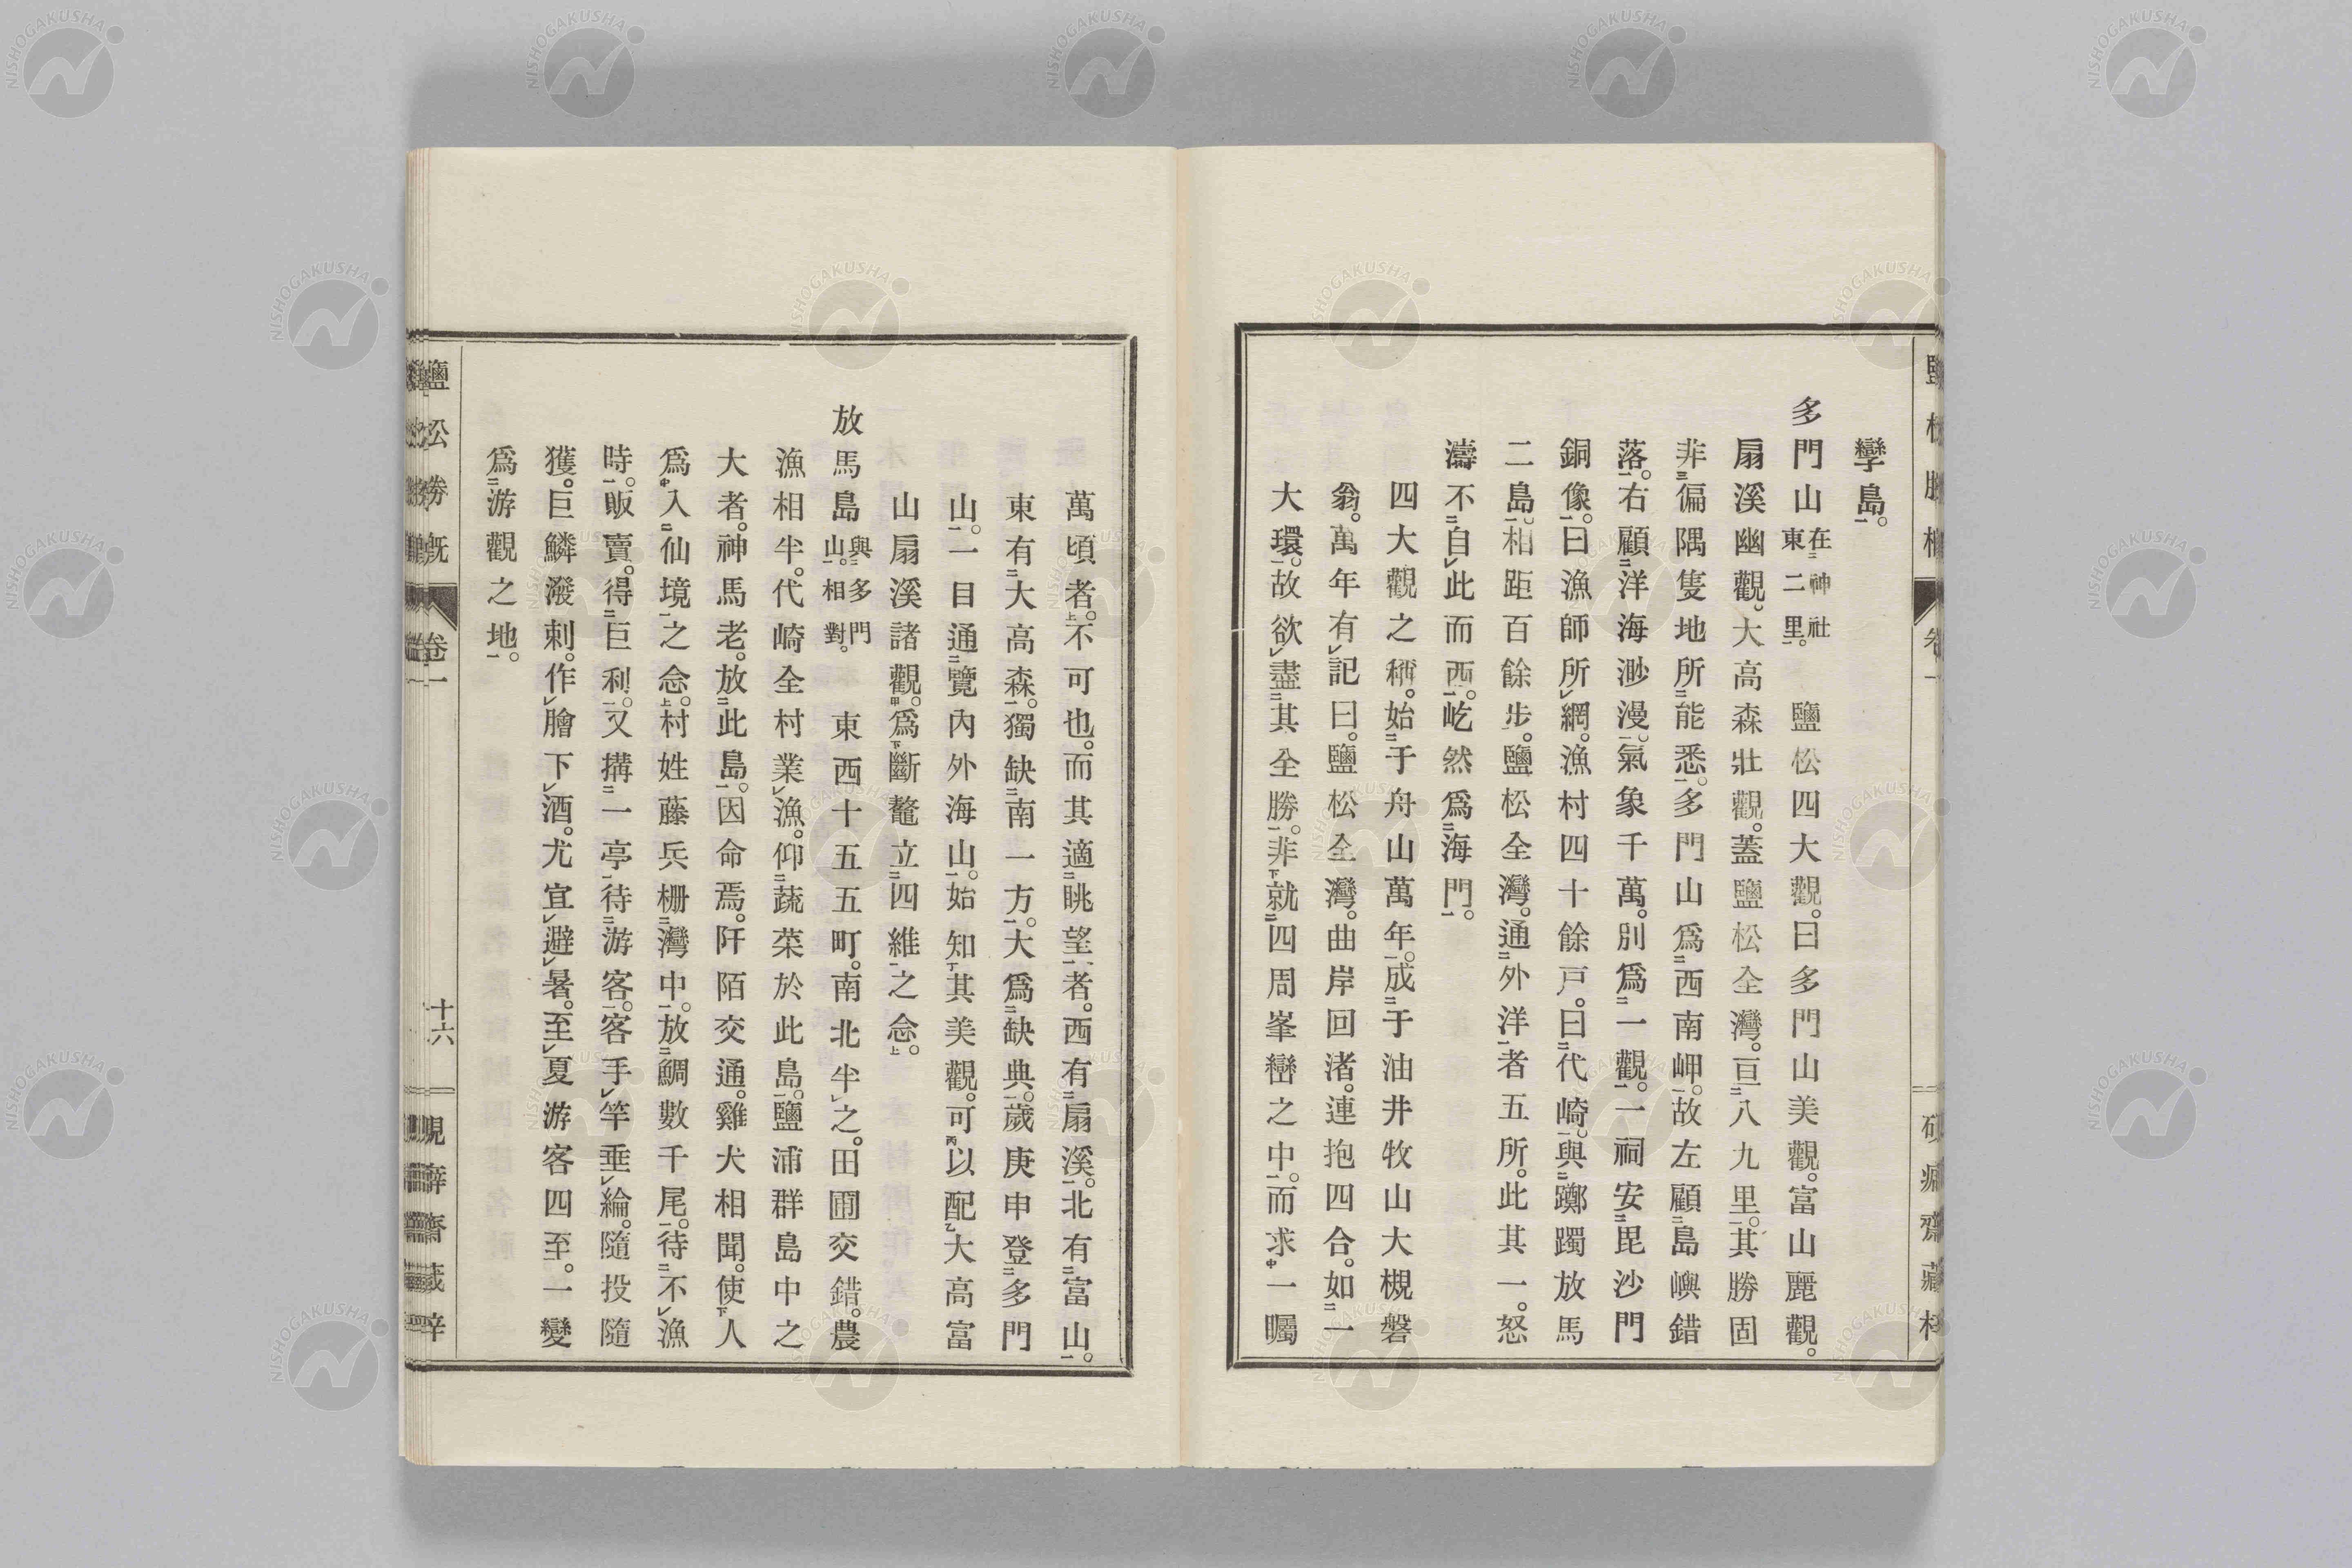 孿島。
多門山在神社東二里。鹽松四大觀。曰多門山美觀。富山麗觀。
扇溪幽觀。大高森壯觀。蓋鹽松全灣。亘八九里。其勝固
非偏隅隻地所能悉。多門山爲西南岬。故左顧島嶼錯
落。右顧洋海渺漫。氣象千萬。別爲一觀。一祠安毘沙門
銅像。曰漁師所網。漁村四十餘戸。曰代崎。與躑躅放馬
二島。相距百餘步。鹽松全灣。通外洋者五所。此其一。怒
濤不自此而西。屹然爲海門。
四大觀之稱。始于舟山萬年。成于油井牧山大槻磐
翁。萬年有記曰。鹽松全灣。曲岸回渚。連抱四合。如一
大環。故欲盡其全勝。非就四周峯巒之中。而求一矚
萬頃者。不可也。而其適眺望者。西有扇溪。北有富山。
東有大高森。獨缺南一方。大爲缺典。歲庚申登多門
山。一目通覽內外海山。始知其美觀。可以配大高富
山扇溪諸觀。爲斷鼇立四維之念。
放馬島與多門山。相對。東西十五五町。南北半之。田圃交錯。農
漁相半。代崎全村業漁。仰蔬菜於此島。鹽浦群島中之
大者。神馬老。放此島。因命焉。阡陌交通。雞犬相聞。使人
爲入仙境之念。村姓藤兵柵灣中。放鯛數千尾。待不漁
時。販賣。得巨利。又搆一亭待游客。客手竿垂綸。隨投隨
獲。巨鱗潑剌。作膾下酒。尤宜避暑。至夏游客四至。一變
爲游觀之地。
鹽松勝概
卷一
十六
NISHOGAKUSHA